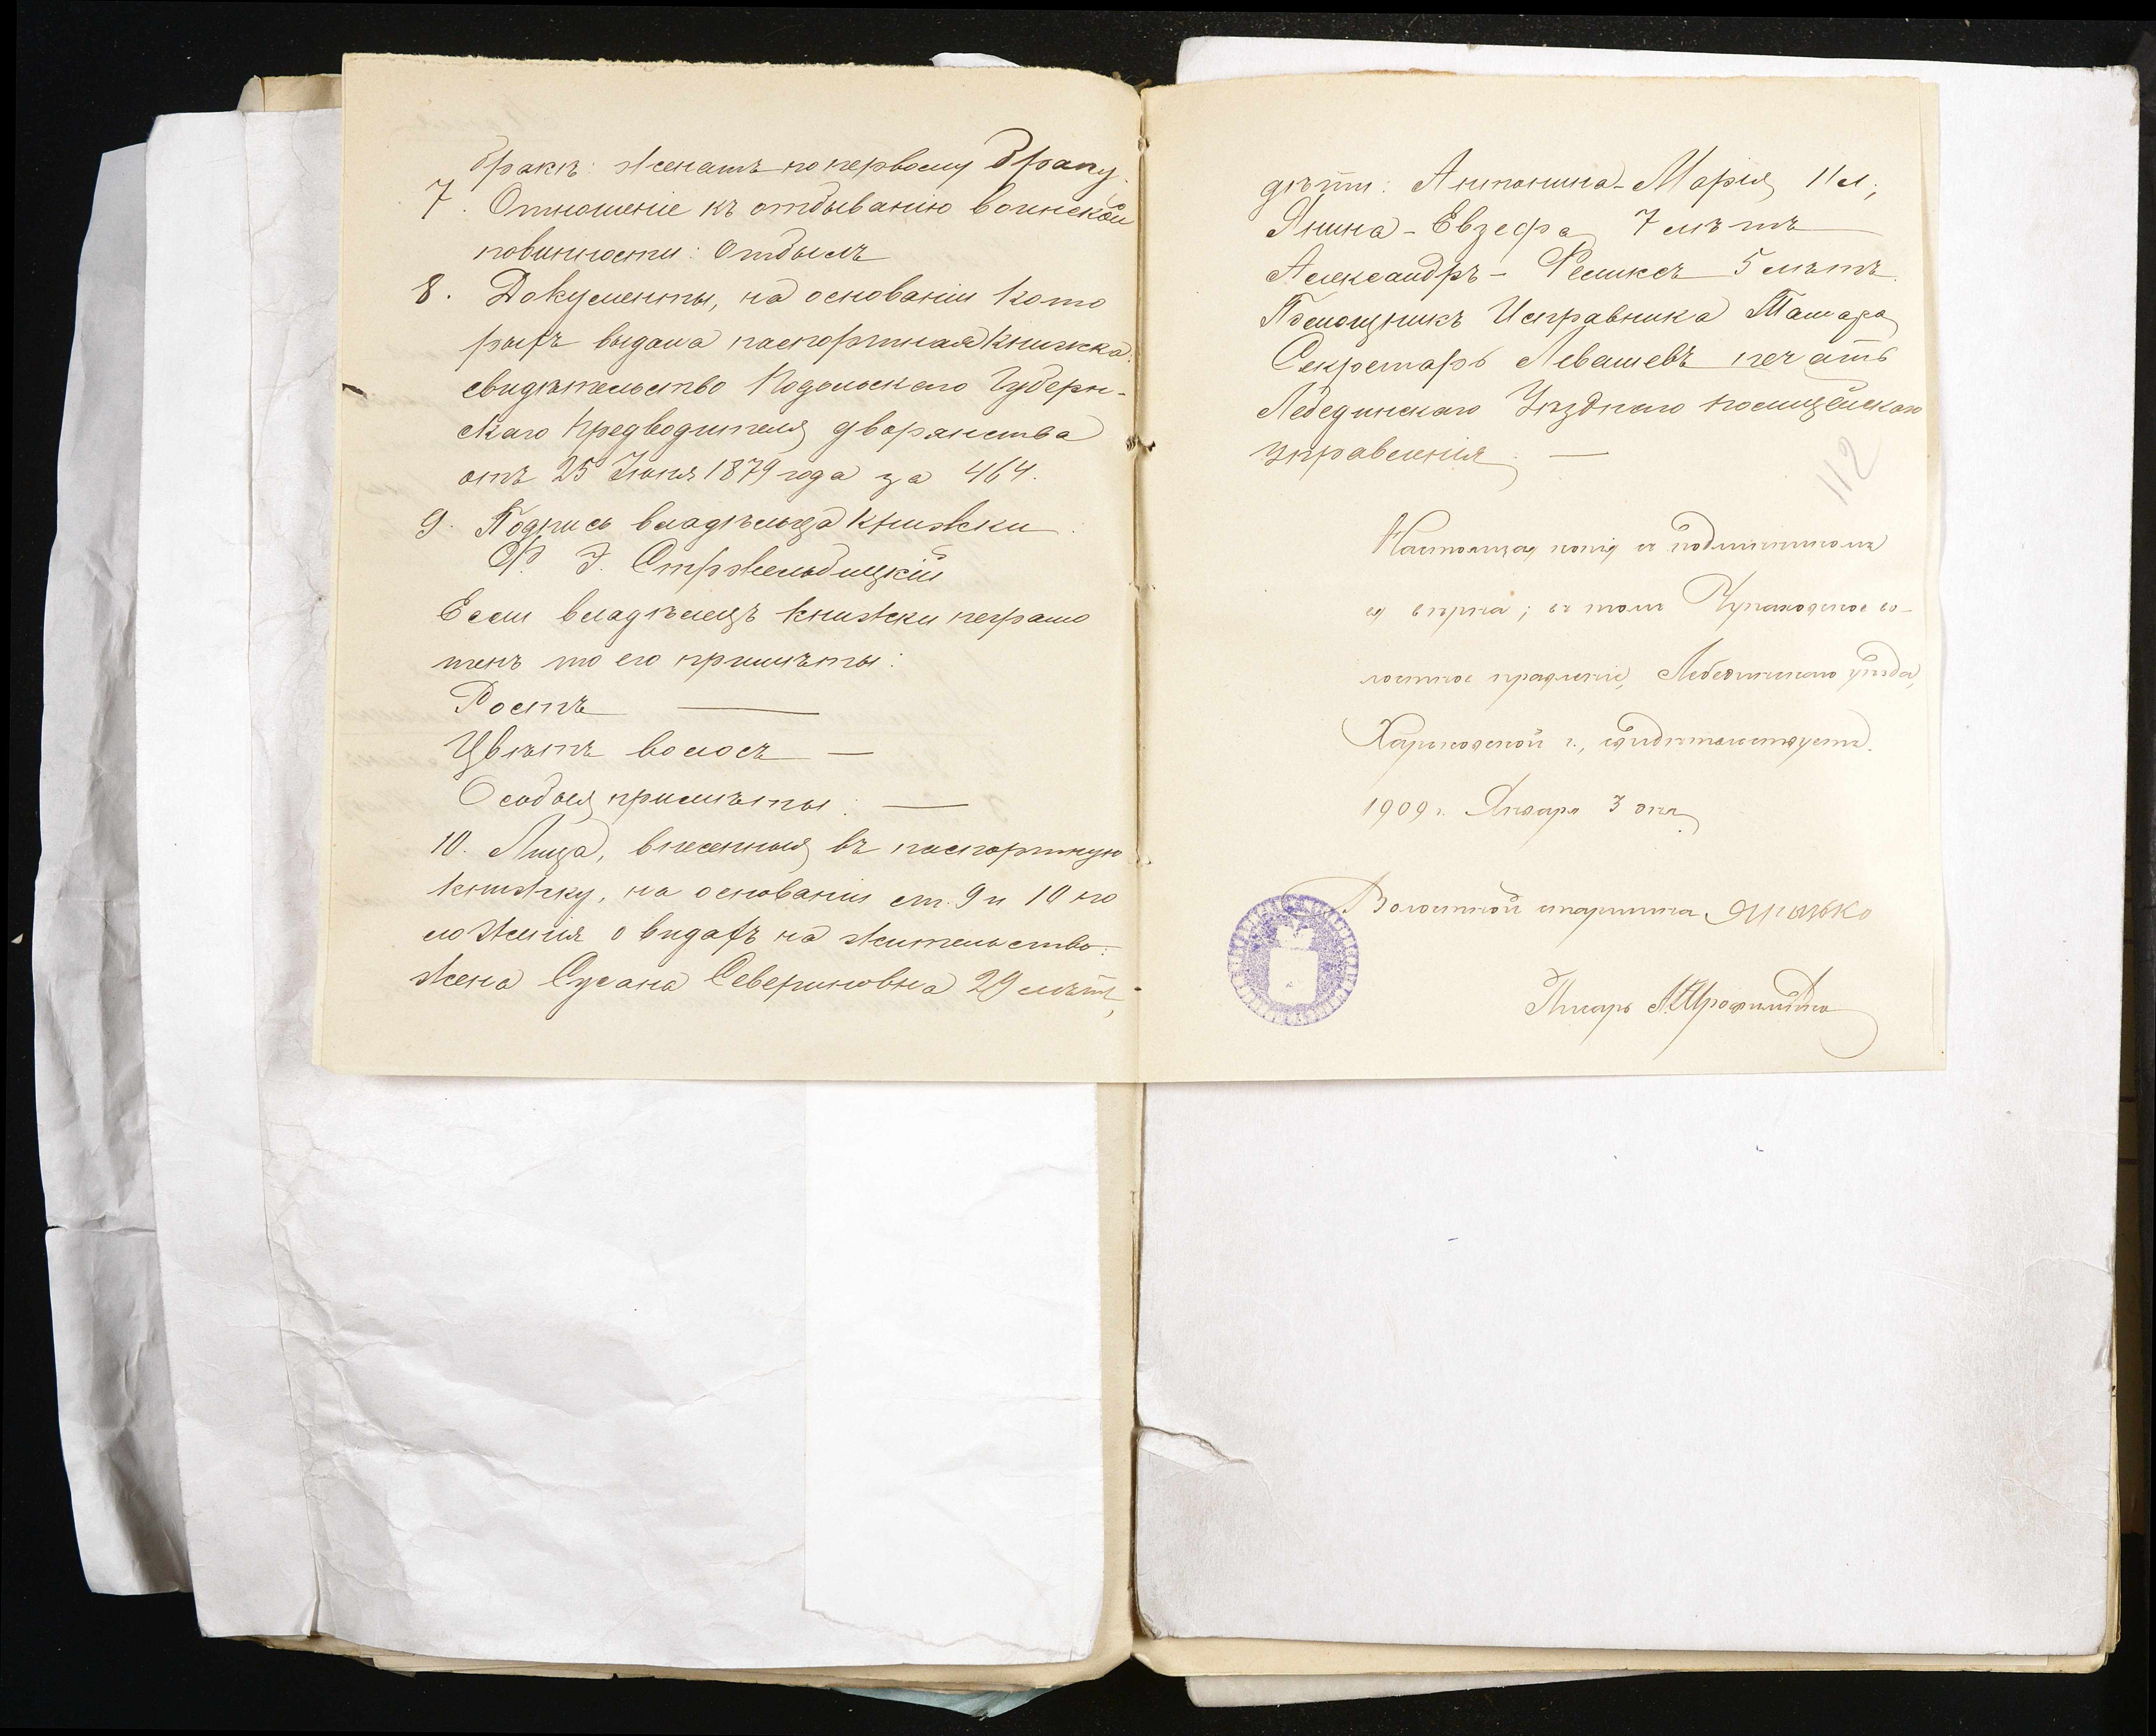 бракѣ: Женатъ по первому браку.
7. Отношеніе къ отбыванію воинской
повинности: отбылъ
8. Документы, на основаніи кото
рыхъ выдана паспортная книжка:
свидѣтельство Подольскаго Губерн-
скаго Предводителя дворянства
отъ 25 Іюня 1879 года за 464.
9. Подпись владѣльца книжки:
Ф. І. Стржельбицкій
Если владѣлецъ книжки неграмо
тенъ то его примѣты:
Ростъ —
Цвѣтъ волосъ —
Особыя примѣты: —
10. Лица, внесенныя въ паспортную
книжку, на основаніи ст. 9 и 10 по
ложенія о видахъ на жительство:
жена Сусана Севериновна 29 лѣтъ,
дѣти: Антонина-Марія 11 л.,
Янина-Евзефа 7 лѣтъ
Александръ-Феликсъ 5 лѣтъ.
Помощникъ Исправника
Секретарь Левашевъ печать
Лебединскаго Уѣзднаго полицейскаго
управленія. —
112
Настоящая копія съ подлинникомъ
вѣрна; въ томъ во-
лостное правленіе, Лебединскаго уѣзда,
Харьковской г., свидѣтельствуетъ.
1909 г. Января 3 дня.
Волостной старшина
Писарь